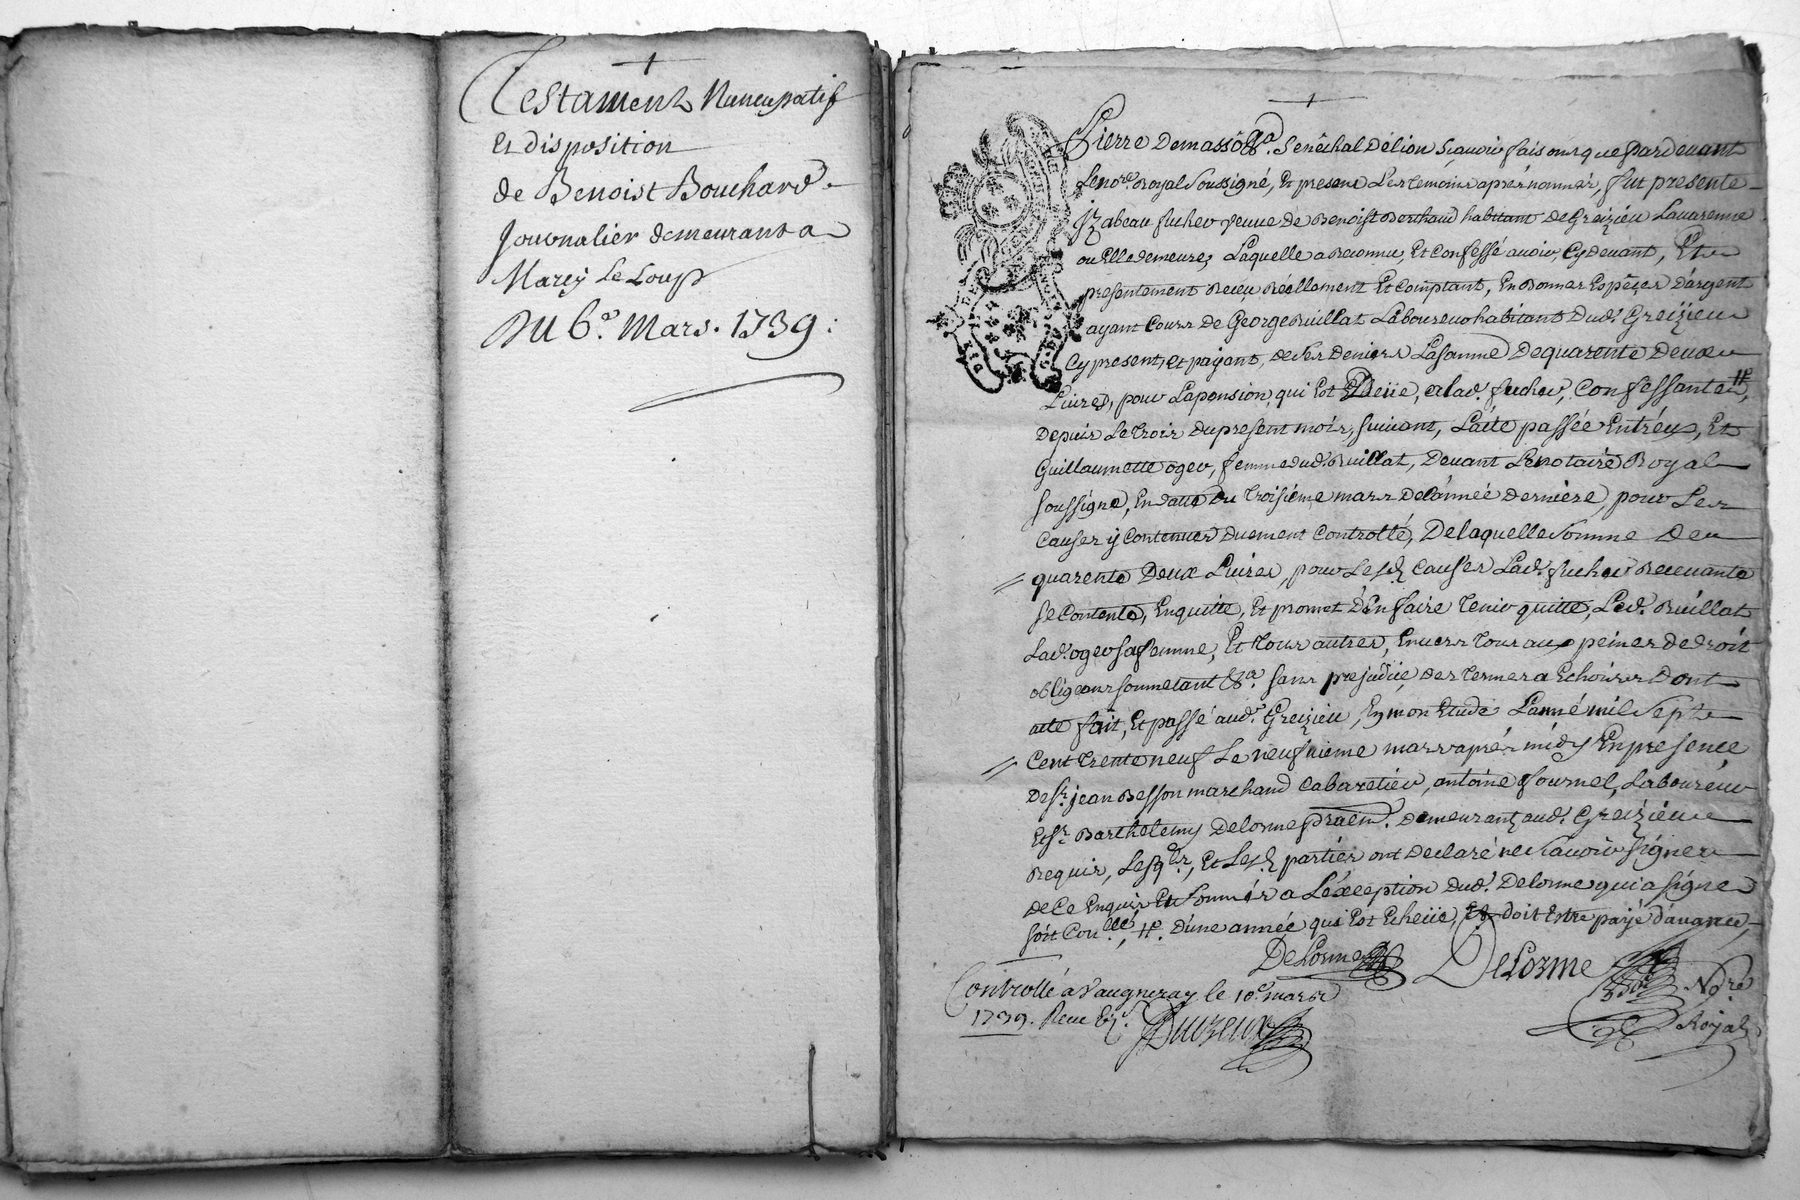 Testament Nuncupatif
Et disposition
de Benoist Bouchard
Journalier demeurant a
Marcy Le Loup
Du 6e. Mars. 1739:
Pierre Demasso &a. Senéchal Délion Sçauoir faisons que pardeuant
Lenore. Royal Soussigné, Et presens Les temoins aprés nommés, fut presente
Izabeau fucher veuue de Benoist Berthaud habitant de Greizieu Lauarenne
ou Elle demeure, Laquelle a Reconnu, Et Confessé auoir, Cy deuant, Et
presentement Reçeu Réellement Et Comptant, En Bonnes Espéçes D'argent
ayant Cours de George Ruillat Laboureur habitant Dud. Greizieu
Cy present, et payant, de Ses Deniers La Somme De quarente Deux
Liures, pour La pension, qui Est Eheüe, a lad. fucher, Confessante #,
Depuis Le trois du present mois, suiuant, L'acte passée Entréux, Et
Guillaumette oger, femme dud. Ruillat, Deuant Le notaire Royal
soussigné, En datte Du troisiéme mars De L'année derniere, pour Les
Causes ÿ Contenues Duement Controllé, De laquelle Somme De
quarente Deux Liures, pour Lesd. Causes Lad. fucher Receuante
se Contente, En quitte, Et promet d'En faire tenir quitte, Led. Ruillat
Lad. oger sa femme, Et tous autres, Enuers tous aux peines de droit
obligeans soumetant &a. sans prejudice, des termes a Echoirs Dont
acte fait, Et passé aud. Greizieu, En mon Etude L'anné mil Sept
Cent trente neuf Le neufuieme mars aprés midy En présençe
de sr. jean Besson marchand Cabaretier, antoine fournel, Laboureur
Et sr. Barthelemy Delorme praen. demeurants aud. Greizieu
Requis, Lesqls., Et Lesd. partiés ont Declaré ne Sçauoir signer
de Ce Enquis Et Sommés a L'éxception dud. Delorme qui a signé
soit Conllé, #. d'une année qui Est Echeüe, Et doit Estre payé d'auançe,
Delorme Delorme
Nore.
Royal
Controllé à Vaugneray le 10e. mars
1739. Receu